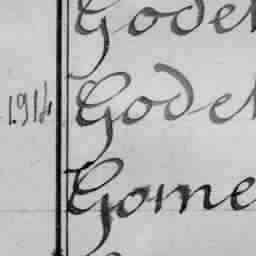 Godet
1914 Godet
Gome